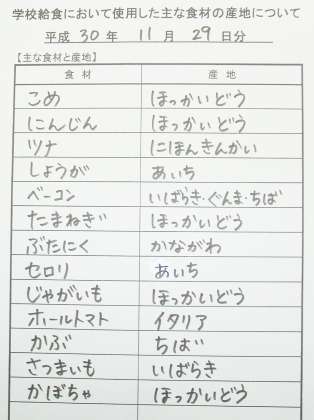 学校給食において使用した主な食材の産地について
平成 30 年 11 月 29 日分
【主な食材と産地】
食 材 産 地
こめ ほっかいどう
にんじん ほっかいどう
ツナ にほんきんかい
しょうが あいち
ベーコン いばらき・ぐんま・ちば
たまねぎ ほっかいどう
ぶたにく かながわ
セロリ あいち
じゃがいも ほっかいどう
ホールトマト イタリア
かぶ ちば
さつまいも いばらき
かぼちゃ ほっかいどう